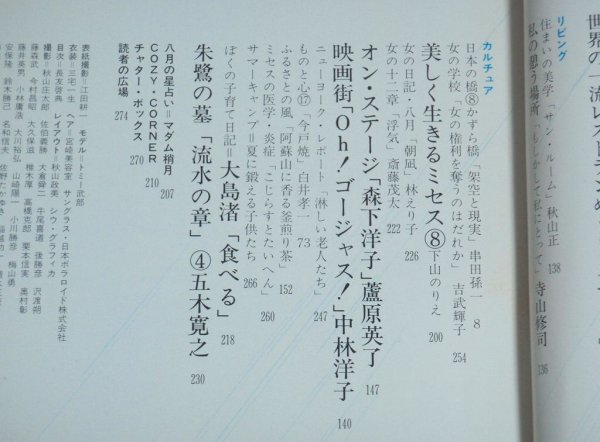 世界の一流レストランめ
リビング
住まいの美学「サン・ルーム」秋山正 138
私の憩う場所「もしかして私にとって」寺山修司 136
カルチュア
日本の橋⑧かずら橋「架空と現実」串田孫一 8
女の学校「女の権利を奪うのはだれか」吉武輝子 254
美しく生きるミセス⑧下山のりえ 200
女の日記・八月「朝凪」林えり子 226
女の十二章「浮気」斎藤茂太 222
オン・ステージ「森下洋子」蘆原英了 147
映画街「Oh!ゴージャス!」中林洋子 140
ニューヨーク・レポート「淋しい老人たち」 247
ものと心⑰「今戸焼」白井孝一 73
ふるさとの風「阿蘇山に香る釜煎り茶」 152
ミセスの医学・炎症「こじらすとたいへん」 260
サマーキャンプ=夏に鍛える子供たち 266
ぼくの子育て日記=大島渚「食べる」 218
朱鷺の墓「流水の章」④五木寛之 230
八月の星占い=マダム梢月 207
COZY・CORNER 210
チャター・ボックス 270
読者の広場 274
表紙撮影=江田耕一 モデル=トミー武部
衣装=三宅一生 ヘア=宮崎美容室 サングラス・日本ポラロイド株式会社
目次=長友啓典 レイアウト=秋山政美 シウ・グラフィカ
撮影=秋山庄太郎 佐伯義勝 大倉舜二 牛尾喜道 後勝彦 沢渡朔
藤森武 今村昌昭 大久保滋 椎木厚 高橋克郎 栗本信実 奥村彰
藤井英男 小林庸浩 大川裕弘 山崎陽一 小川勝彦 梅山勇
安保隆 鈴木勝己 名和信夫 佐野たかゆき